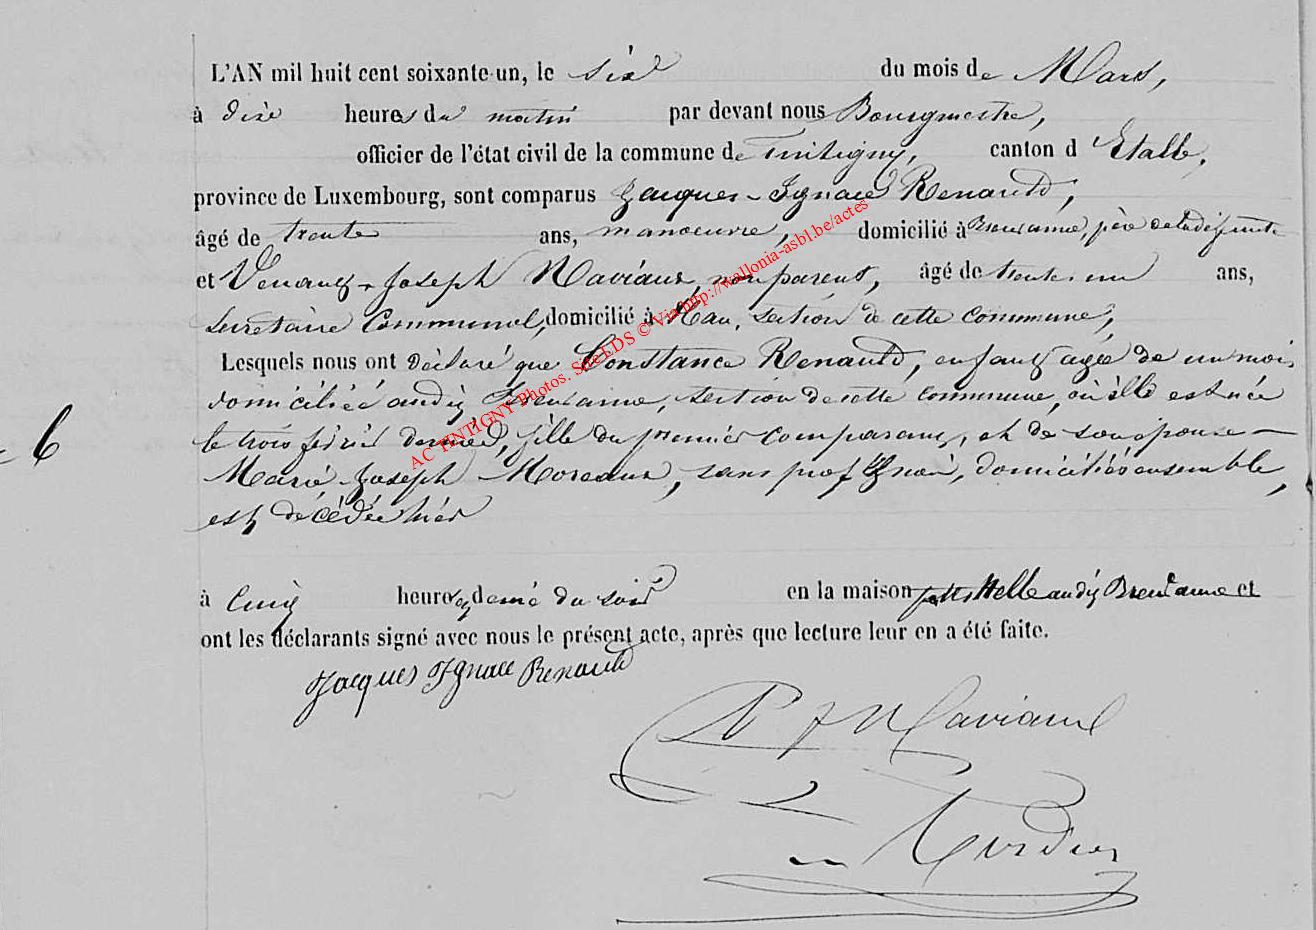 L'AN mil huit cent soixante-un, le six du mois de Mars,
à dix heures du matin par devant nous Bourgmestre,
officier de l'état civil de la commune de Tintigny, canton d'Etalle,
province de Luxembourg, sont comparus Jacques-Ignace Renauld,
âgé de trente ans, manoeuvre, domicilié à Breuvanne, père de la défunte
et Venant-Joseph Naviaux, non parent, âgé de trente un ans,
Secrétaire Communal, domicilié à Han, section de cette commune,
Lesquels nous ont déclaré que Constance Renauld, enfant agée de un mois
domiciliée audit Breuvanne, section de cette commune, où elle est née
6
le trois février dernier, fille du premier comparant, et de son épouse
Marie-Joseph Moreaux, sans profession, domiciliés ensemble,
est décédée hier
à Cinq heures et demie du soir en la maison audit Breuvanne et
ont les déclarants signé avec nous le présent acte, après que lecture leur en a été faite.
Jacques Ignace Renauld
V J Naviaux
AC TINTIGNY Photos. Site LDS © Via http://wallonia-asbl.be/actes